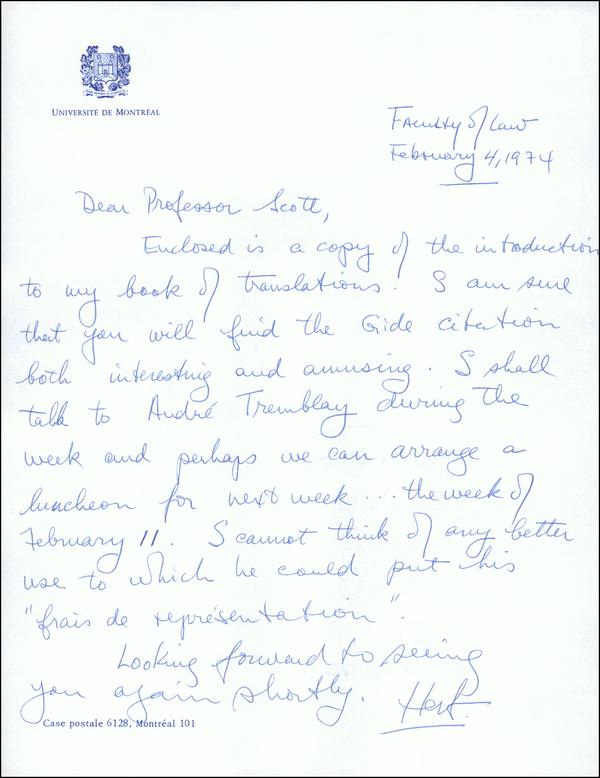 UNIVERSITÉ DE MONTRÉAL
Faculty of Law
February 4, 1974
Dear Professor Scott,
Enclosed is a copy of the introduction
to my book of translations. I am sure
that you will find the Gide citation
both interesting and amusing. I shall
talk to André Tremblay during the
week and perhaps we can arrange a
luncheon for next week... the week of
February 11. I cannot think of any better
use to which he could put his
"frais de représentation".
Looking forward to seeing
you again shortly.
Case postale 6128, Montréal 101